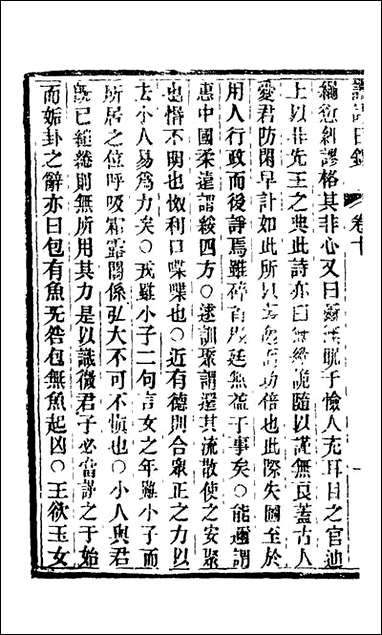 讀詩日錄 卷十
繩愆糾謬格其非心又曰爾無昵于憸人充耳目之官迪
上以非先王之典此詩亦曰無縱詭隨以謹無良蓋古人
愛君防閑早計如此所以 功倍也此際失圖至於
用人行政而後諍焉雖碎首殿廷無益于事矣○能邇謂
惠中國柔遠謂綏四方○逑訓聚謂遏其流散使之安聚
也惛不明也怓利口喋喋也○近有德則合衆正之力以
去小人易爲力矣○戎雖小子二句言女之年雖小子而
所居之位呼吸霜露關係弘大不可不愼也○小人與君
旣已繾綣則無所用其力是以識微君子必當謹之于始
而姤卦之辭亦曰包有魚无咎包無魚起凶○王欲玉女